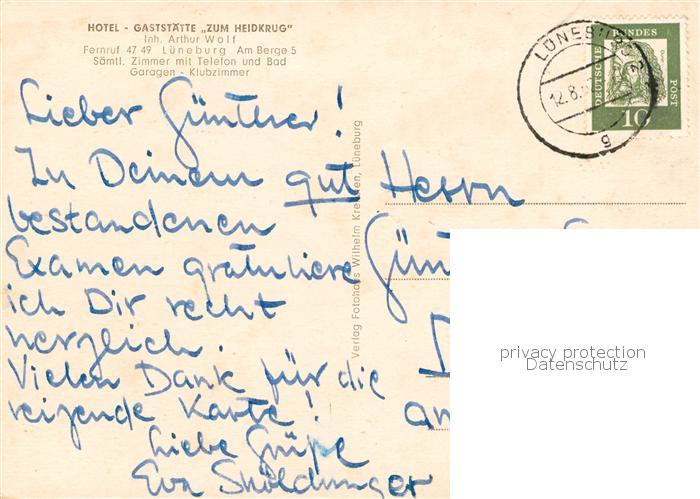 HOTEL - GASTSTÄTTE „ZUM HEIDKRUG"
Inh. Arthur Wolf
Fernruf 47 49 Lüneburg Am Berge 5
Sämtl. Zimmer mit Telefon und Bad
Garagen - Klubzimmer
LÜNEBURG 2
12.8.
g
DEUTSCHE BUNDESPOST
10
Lieber Günther!
Zu Deinem gut
bestandenen
Examen gratuliere
ich Dir recht
herzlich.
Vielen Dank für die
reizende Karte!
Liebe Grüße
Eva
Verlag Fotohaus Wilhelm Lüneburg
Herrn
Gün
privacy protection
Datenschutz